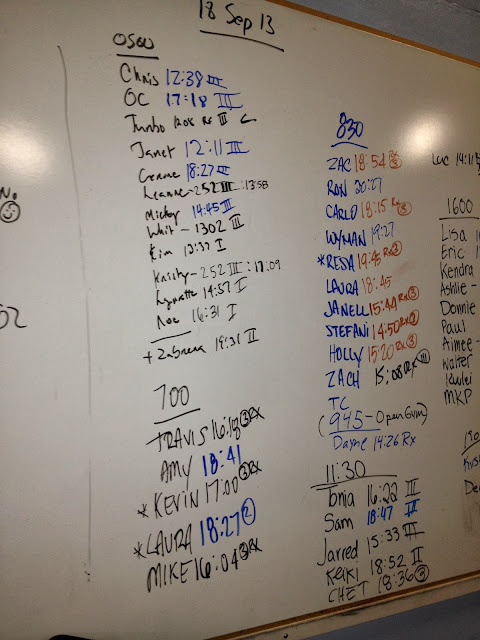 18 Sep 13
0500
Chris 12:38 III
OC 17:18 III
Jumbo Rx III
Janet 12:11 III
18:27 III
Leanne - 252 III : 13:58
Mickey 14:45 III
Whit - 1302 III
Kim 13:37 I
Kristy - 252 III : 17:09
Lynette 14:57 I
Noe 16:31 I
+ Zabrena 19:31 II
700
TRAVIS 16:18 ③ Rx
AMY 18:41
* KEVIN 17:00 ③ Rx
* LAURA 18:27 ②
MIKE 16:04 ③ Rx
830
ZAC 18:54 Rx
RON 20:27
CARLO 18:15 Rx ③
WYMAN 19:27
* RESA 19:45 Rx ②
LAURA 18:45
JANELL 15:44 Rx ③
STEFANI 14:50 Rx ②
HOLLY 15:20 Rx ③
ZACH 15:08 Rx III
TC
(945 - Open Gym)
Dayne 14:26 Rx
11:30
Tonia 16:22 II
Sam 18:47 II
Jarred 15:33 III
Keiki 18:52 II
CHET 18:36 ③
Luc 14:11
1600
Lisa
Eric
Kendra
Ashlie -
Donnie
Paul
Aimee -
Walter
MKP